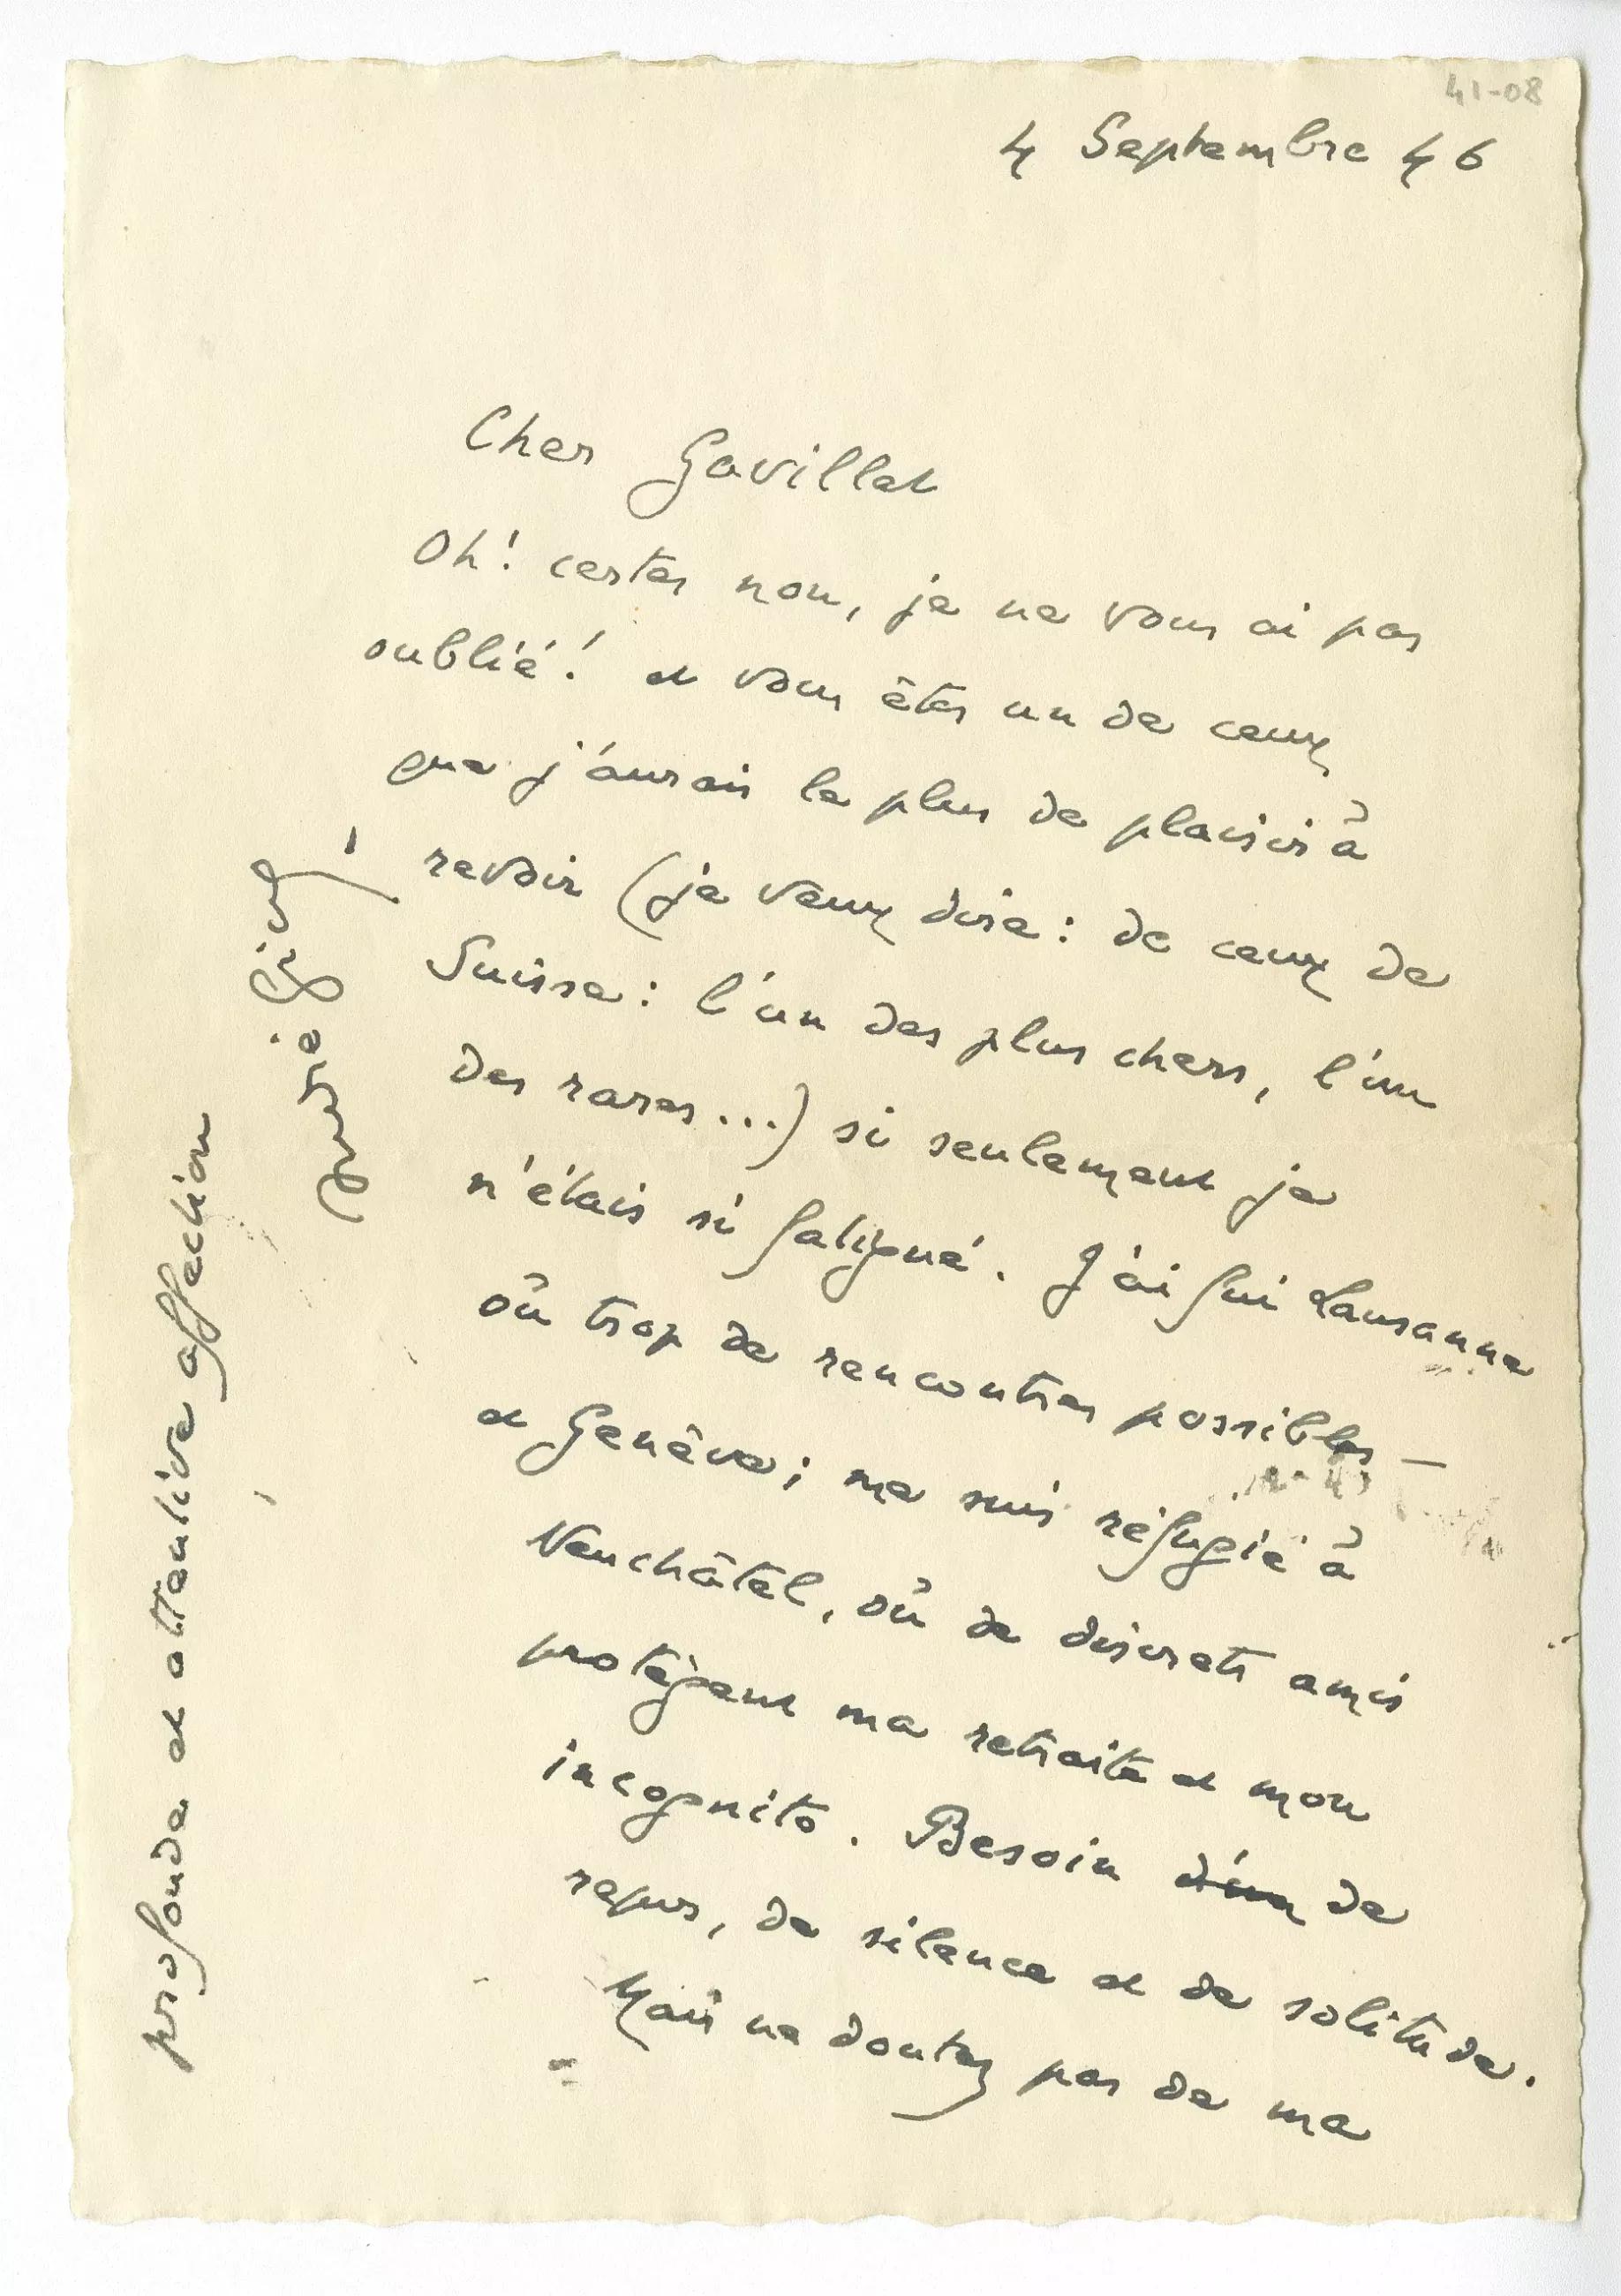 41-08
4 Septembre 46
Cher Gavillet
Oh! certes non, je ne vous ai pas
oublié! et vous êtes un de ceux
que j'aurais le plus de plaisir à
revoir (je veux dire: de ceux de
Suisse: l'un des plus chers, l'un
des rares...) si seulement je
n'étais si fatigué. J'ai fui Lausanne
où trop de rencontres possibles —
et Genève; me suis réfugié à
Neuchâtel, où de discrets amis
protègent ma retraite et mon
incognito. Besoin d'un de
repos, de silence et de solitude.
Mais ne doutez pas de ma
profonde et attentive affection
André Gide